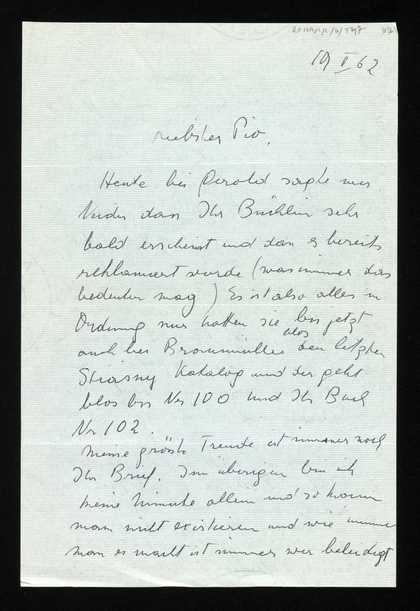 19 V 62
Liebster Pio,
Heute bei Gerold sagte mir
dass Ihr Büchlein sehr
bald erscheint und dass es bereits
reklamiert wurde (was immer das
bedeuten mag) Es ist also alles in
Ordnung nur hatten sie bis jetzt
auch bei Braumüller blos den letzten
Strasny Katalog und der geht
blos bis Nr 100 und Ihr Buch
Nr 102.
Meine grösste Freude ist immer noch
Ihr Brief. Im übrigen bin ich
keine Minute allein und so kann
man nicht existieren und wie immer
man es macht ist immer wer beleidigt